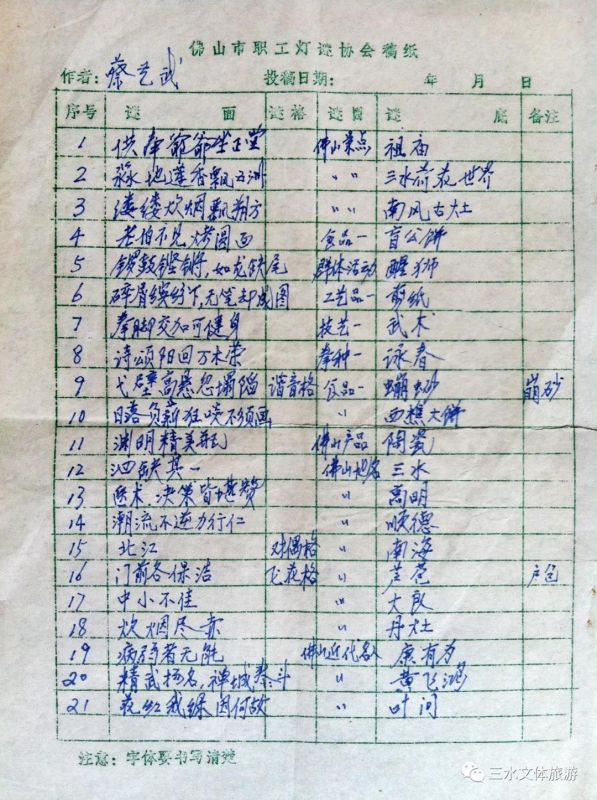 佛山市职工灯谜协会稿纸
作者：蔡艺武 投稿日期： 年 月 日
序号 谜 面 谜格 谜目 谜 底 备注
1 供奉爺爺坐正堂 佛山景点 祖庙
2 遍地莲香飘五洲 〃 三水荷花世界
3 缕缕炊烟飘朔方 〃 南风古灶
4 老伯不见烤圆面 食品一 盲公饼
5 锣鼓铿锵，如龙缺尾 群体活动 醒狮
6 碎屑缤纷下，无笔却成图 工艺品一 剪纸
7 拳脚交加可健身 技艺一 武术
8 诗颂阳回万木荣 拳种一 咏春
9 弋壁高悬忽塌陷 谐音格 食品一 蹦砂 崩砂
10 日落负薪狂啖不须画 〃 西樵大饼
11 渊明精美瓶 佛山产品 陶瓷
12 泗缺其一 佛山地名 三水
13 医术、决策皆堪赞 〃 高明
14 潮流不逆力行仁 〃 顺德
15 北江 对偶格 〃 南海
16 门前各保洁 飞花格 〃 芦苞 户包
17 中小不佳 〃 大良
18 炊烟尽赤 〃 丹灶
19 病弱者无能 佛山近代名人 康有为
20 精武扬名，禅城 斗 〃 黄飞鸿
21 花红我绿因何故 〃 叶问
注意：字体要书写清楚
三水文体旅游